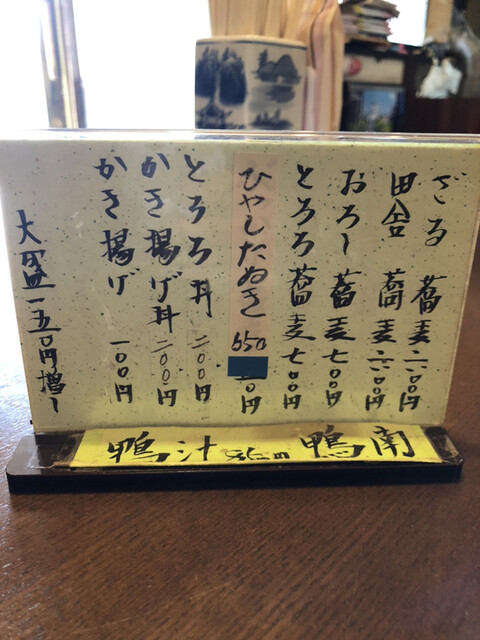 ざる蕎麦 六〇〇円
田舎蕎麦 六〇〇円
おろし蕎麦 七〇〇円
とろろ蕎麦 七〇〇円
ひやしたぬき 650 円
とろろ丼 二〇〇円
かき揚げ丼 二〇〇円
かき揚げ 一〇〇円
大盛一五〇円増し
鴨汁 鴨南